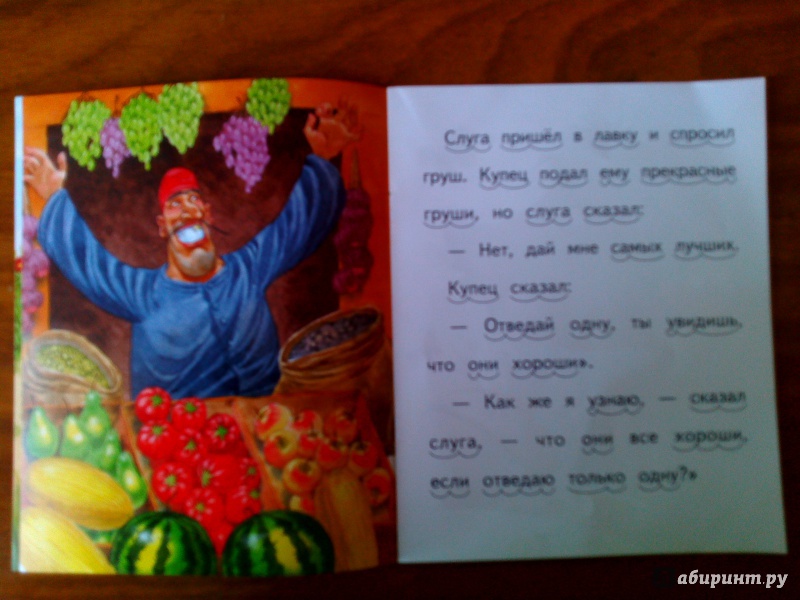 Слуга пришёл в лавку и спросил
груш. Купец подал ему прекрасные
груши, но слуга сказал:
— Нет, дай мне самых лучших.
Купец сказал:
— Отведай одну, ты увидишь,
что они хороши».
— Как же я узнаю, — сказал
слуга, — что они все хороши,
если отведаю только одну?»
абиринт.ру